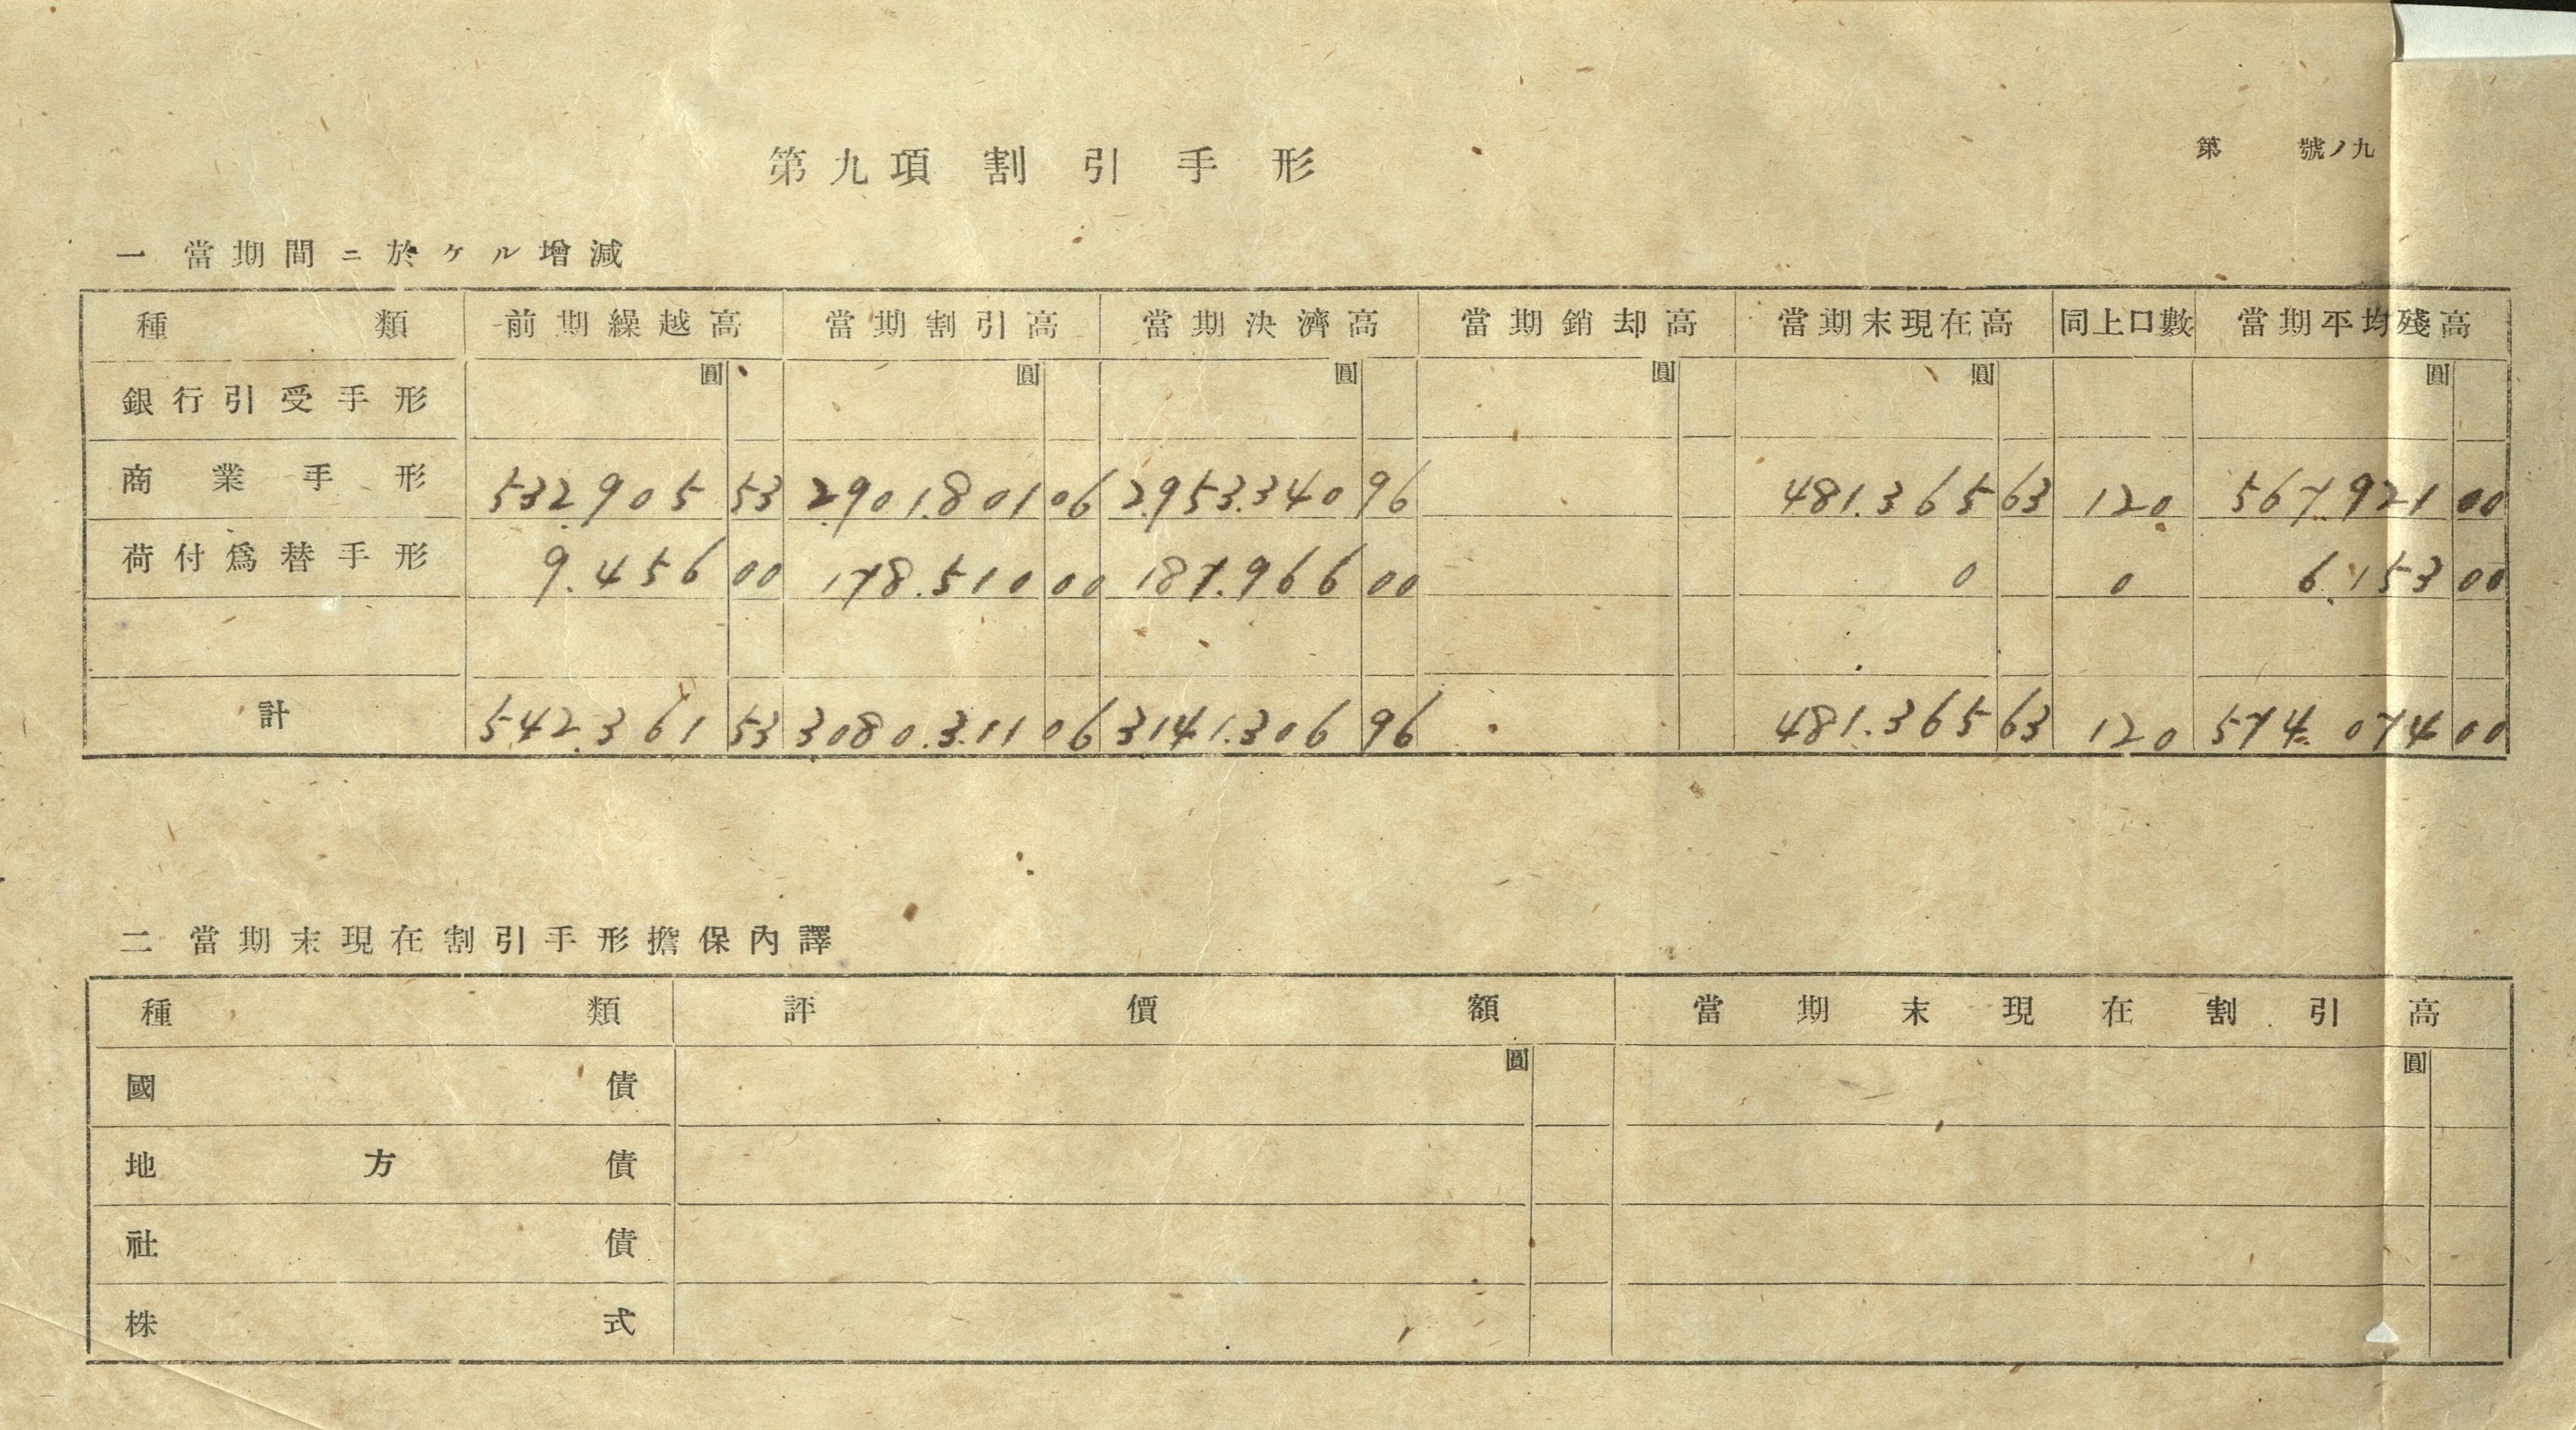 第九項 割引手形
第 號ノ九
一 當期間ニ於ケル增減
種類 前期繰越高 當期割引高 當期決濟高 當期銷却高 當期末現在高 同上口數 當期平均殘高
圓 圓 圓 圓 圓 圓
銀行引受手形
商業手形 532.905 53 2.901.801 06 2.953.340 96 481.365 63 120 567.921 00
荷付爲替手形 9.456 00 178.510 00 187.966 00 0 0 6.153 00
計 542.361 53 3080.311 06 3141.306 96 481.365 63 120 574.074 00
二 當期末現在割引手形擔保內譯
種類 評價額 當期末現在割引高
圓 圓
國債
地方債
社債
株式